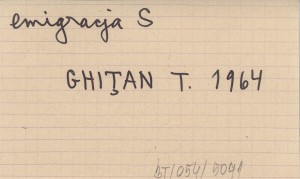 emigracja S
GHIŢAN T. 1964
BT/054/5041